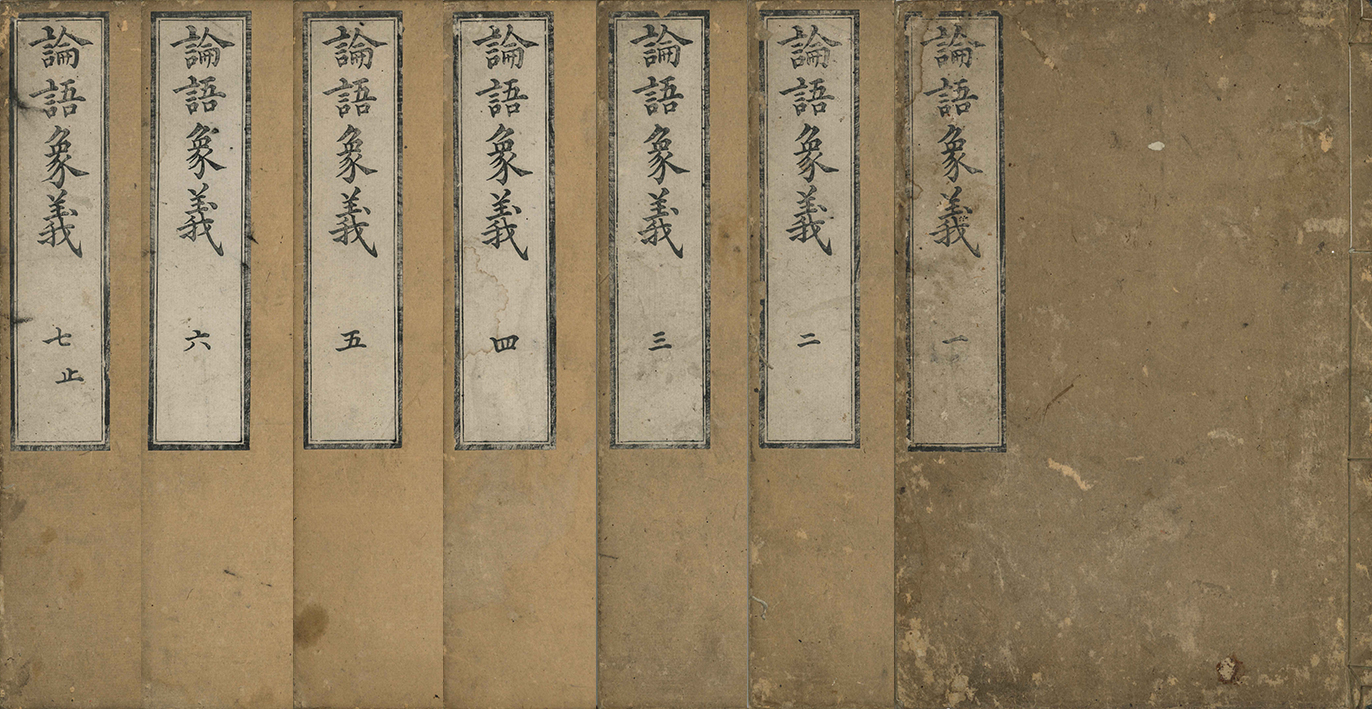 論語象義 一
論語象義 二
論語象義 三
論語象義 四
論語象義 五
論語象義 六
論語象義 七止